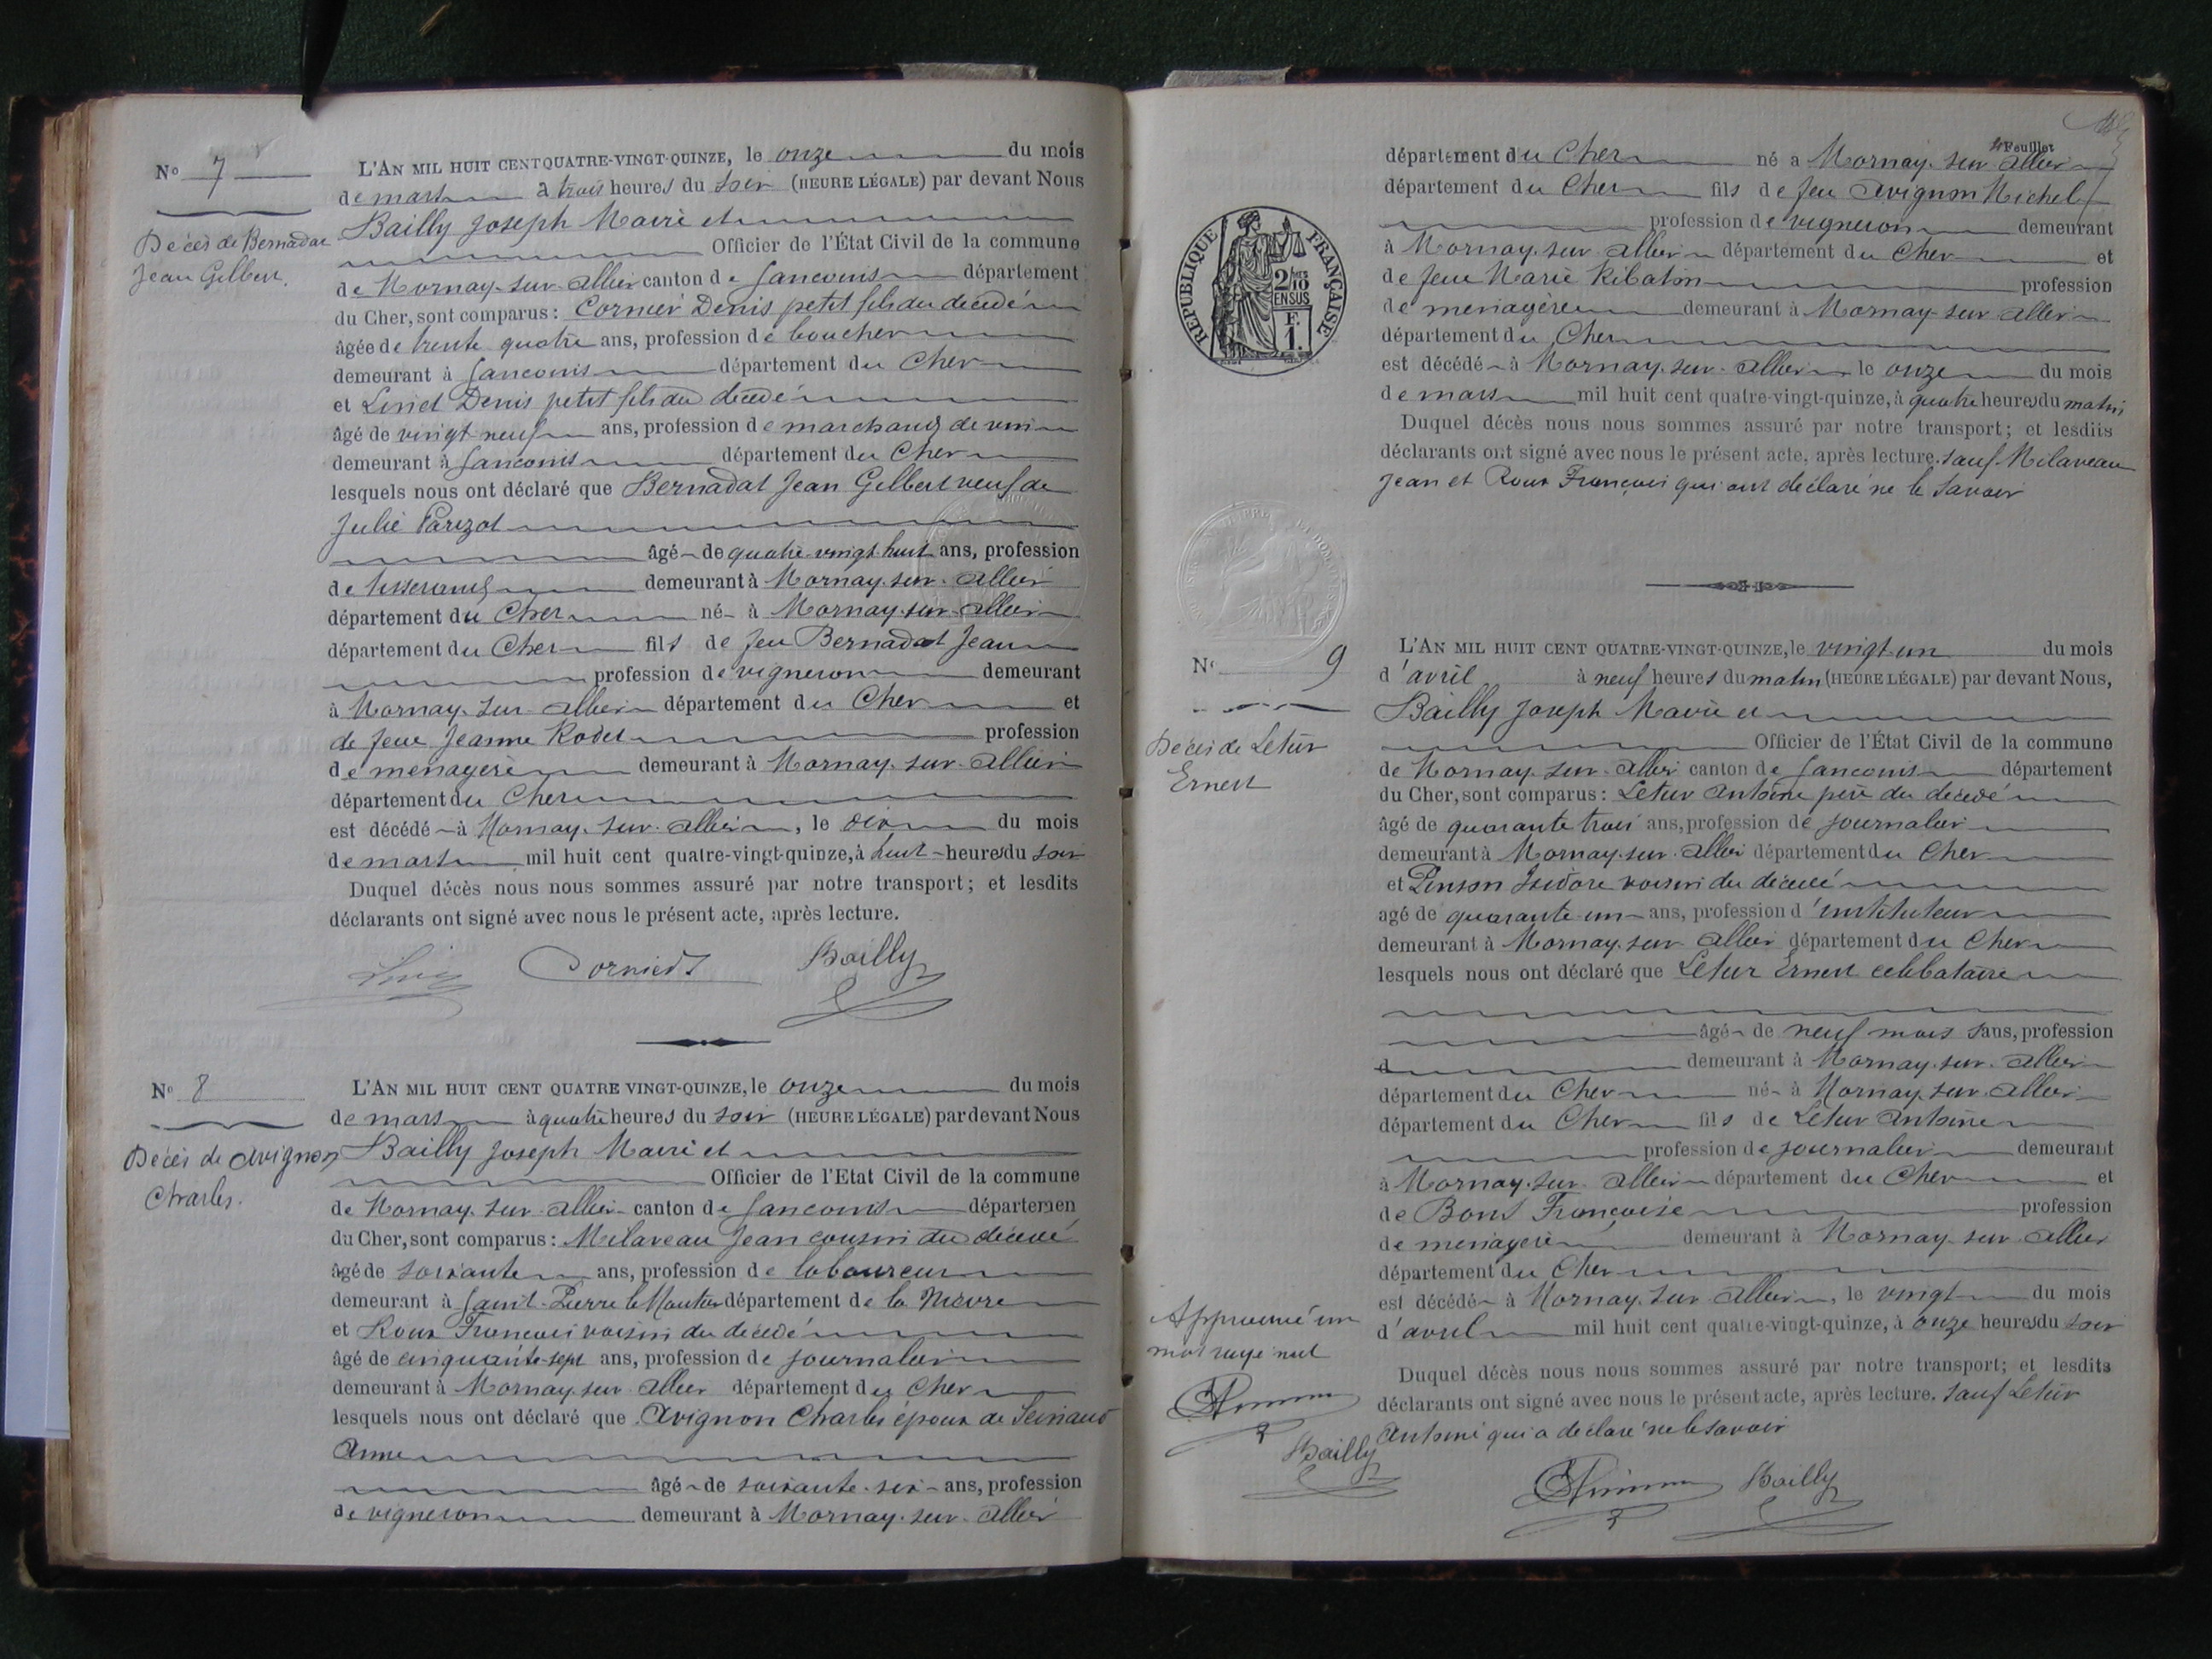 No 7
Décès de Bernadat
Jean Gilbert.
L'AN MIL HUIT CENT QUATRE-VINGT-QUINZE, le onze du mois
de mars à trois heures du soir (HEURE LÉGALE) par devant Nous
Bailly Joseph Maire et
Officier de l'État Civil de la commune
de Mornay-sur-Allier canton de Sancoins département
du Cher, sont comparus : Cornier Denis petit fils du décédé
âgée de trente quatre ans, profession de boucher
demeurant à Sancoins département du Cher
et Liniet Denis petit fils du décédé
âgé de vingt-neuf ans, profession de marchand de vin
demeurant à Sancoins département du Cher
lesquels nous ont déclaré que Bernadat Jean Gilbert veuf de
Julie Parizot
âgé de quatre-vingt-huit ans, profession
de tisserand demeurant à Mornay-sur-Allier
département du Cher né à Mornay-sur-Allier
département du Cher fils de feu Bernadat Jean
profession de vigneron demeurant
à Mornay-sur-Allier département du Cher et
de feue Jeanne Rodet profession
de ménagère demeurant à Mornay-sur-Allier
département du Cher
est décédé à Mornay-sur-Allier, le dix du mois
de mars mil huit cent quatre-vingt-quinze, à huit heures du soir
Duquel décès nous nous sommes assuré par notre transport; et lesdits
déclarants ont signé avec nous le présent acte, après lecture.
Bailly
No 8
Décès de Avignon
Charles.
L'AN MIL HUIT CENT QUATRE VINGT-QUINZE, le onze du mois
de mars à quatre heures du soir (HEURE LÉGALE) par devant Nous
Bailly Joseph Maire et
Officier de l'Etat Civil de la commune
de Mornay-sur-Allier canton de Sancoins départemen
du Cher, sont comparus : Milaveau Jean cousin du décédé
âgé de soixante ans, profession de laboureur
demeurant à Saint-Pierre le Moutier département de la Nièvre
et Roux François voisin du décédé
âgé de cinquante-sept ans, profession de journalier
demeurant à Mornay-sur-Allier département du Cher
lesquels nous ont déclaré que Avignon Charles époux de
Anne
âgé de soixante-six ans, profession
de vigneron demeurant à Mornay-sur-Allier
4e Feuillet
département du Cher né a Mornay-sur-Allier
département du Cher fils de feu Avignon Michel
profession de vigneron demeurant
à Mornay-sur-Allier département du Cher et
de feue Marie Ribaton profession
de ménagère demeurant à Mornay-sur-Allier
département du Cher
est décédé à Mornay-sur-Allier le onze du mois
de mars mil huit cent quatre-vingt-quinze, à quatre heures du matin
Duquel décès nous nous sommes assuré par notre transport; et lesdits
déclarants ont signé avec nous le présent acte, après lecture. sauf Milaveau
Jean et Roux François qui ont déclaré ne le savoir
REPUBLIQUE FRANÇAISE
2/10
EN SUS
F.
1.
No 9
Décès de Letur
Ernest
L'AN MIL HUIT CENT QUATRE-VINGT-QUINZE, le vingt-un du mois
d'avril à neuf heures du matin (HEURE LÉGALE) par devant Nous,
Bailly Joseph Maire et
Officier de l'État Civil de la commune
de Mornay-sur-Allier canton de Sancoins département
du Cher, sont comparus : Letur Antoine père du décédé
âgé de quarante trois ans, profession de journalier
demeurant à Mornay-sur-Allier département du Cher
et Pinson Isidore voisin du décédé
agé de quarante-un ans, profession d'instituteur
demeurant à Mornay-sur-Allier département du Cher
lesquels nous ont déclaré que Letur Ernest célibataire
âgé de neuf mois ans, profession
d demeurant à Mornay-sur-Allier
département du Cher né à Mornay-sur-Allier
département du Cher fils de Letur Antoine
profession de journalier demeurant
à Mornay-sur-Allier département du Cher et
de Bont Françoise profession
de ménagère demeurant à Mornay-sur-Allier
département du Cher
est décédé à Mornay-sur-Allier, le vingt du mois
d'avril mil huit cent quatre-vingt-quinze, à onze heures du soir
Duquel décès nous nous sommes assuré par notre transport; et lesdits
déclarants ont signé avec nous le présent acte, après lecture. sauf Letur
Antoine qui a déclaré ne le savoir
Approuvé un
mot rayé nul
Bailly
Bailly